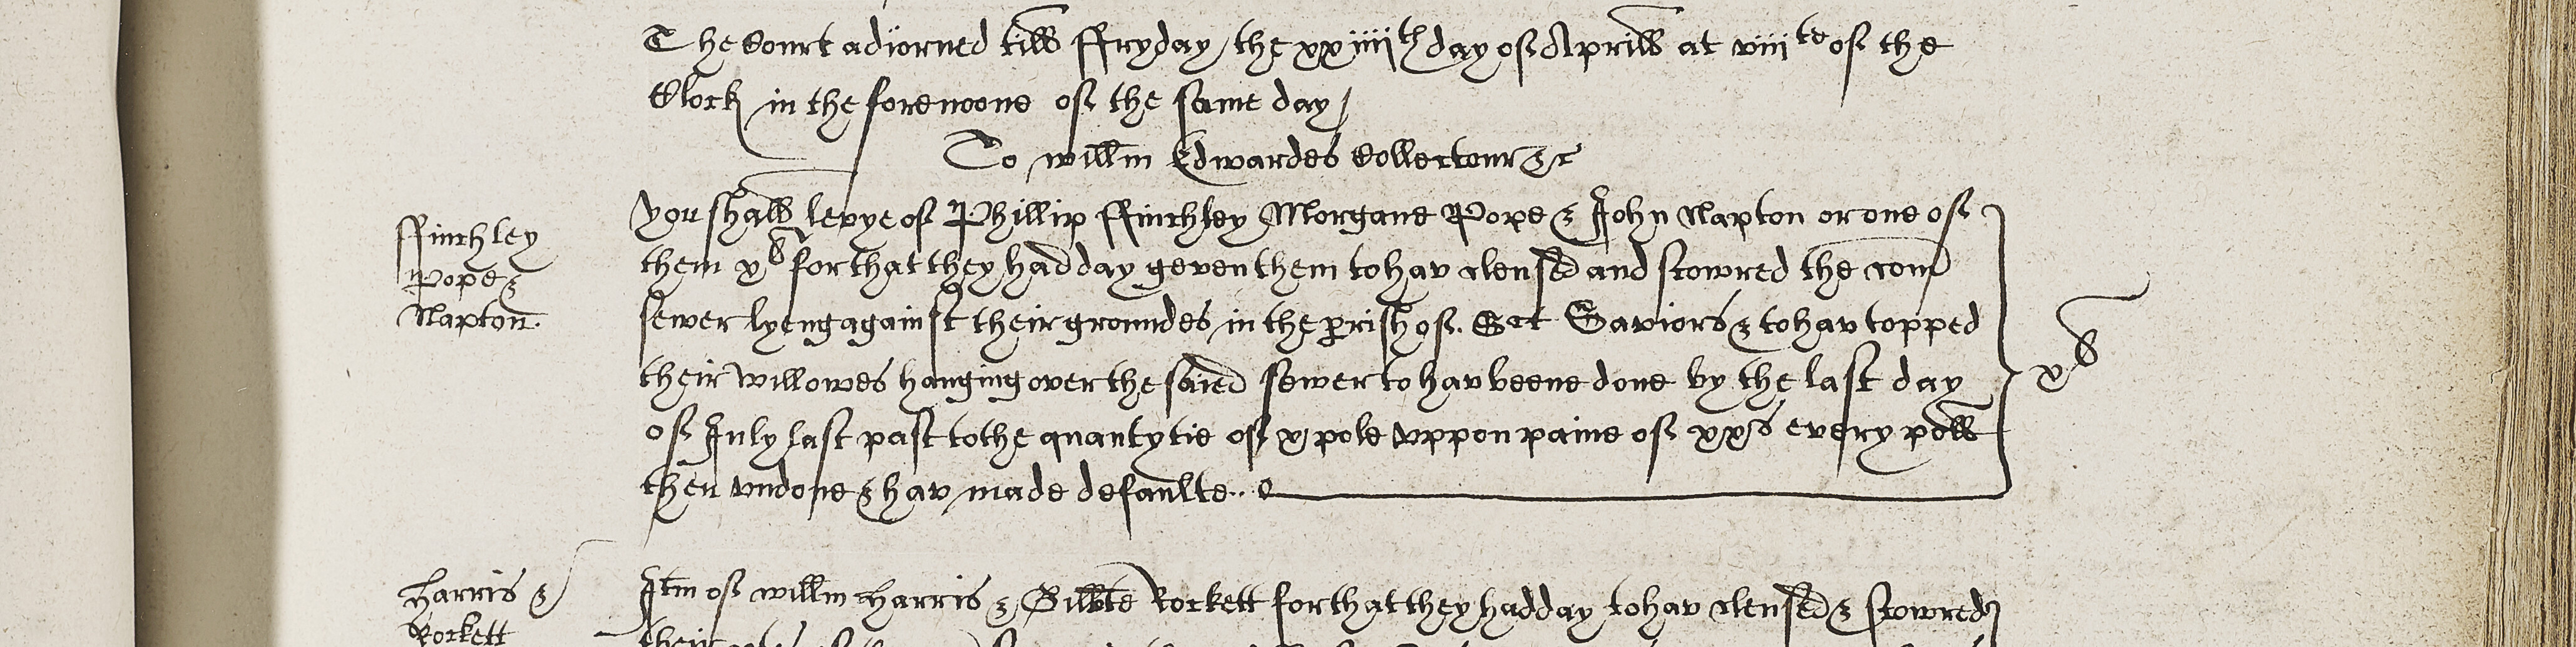 The Court adiorned till ffryday the xxiiiith day of Aprill at viii te of the
Clock in the forenoone of the same day
To willm Edwardes Collectour &c
ffinchley
Pope &
Napton.
you shall levye of Phillip ffinchley Morgane Pope & John Napton or one of
them xs for that they had day geven them to hav clensed and scowred the com
sewer lyeng against their groundes in the prish of Sct Saviors & to hav topped
their willowes hanging over the saied sewer to hav beene done by the last day
of July last past to the quantytie of x pole vppon paine of xxs every poll
then vndone & hav made defaulte..
xs
Harris &
Rockett
Itm of willm Harris & Gilbte Rockett for that they had day to hav clensed & scowred
their